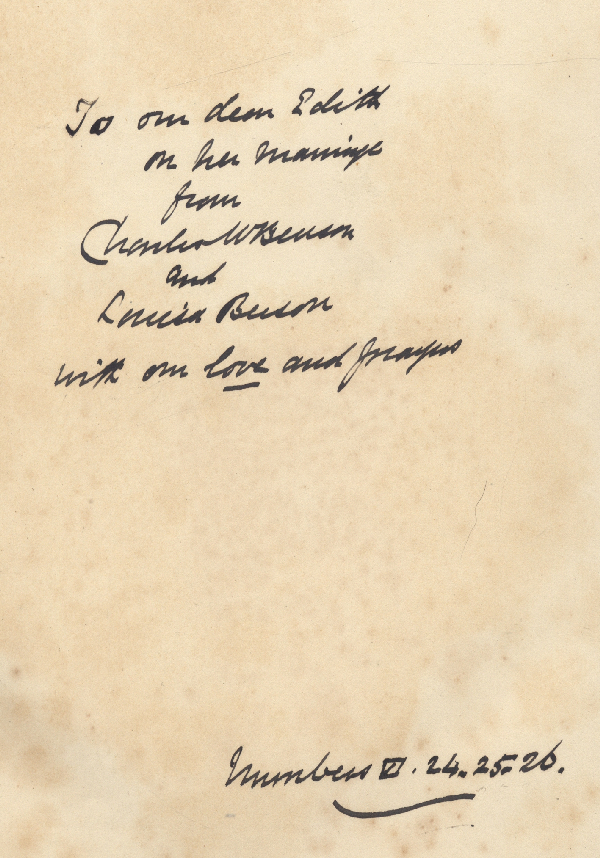 To our dear Edith
on her marriage
from
Charles W Benson
and
Louisa Benson
with our love and prayers
Numbers VI. 24. 25. 26.